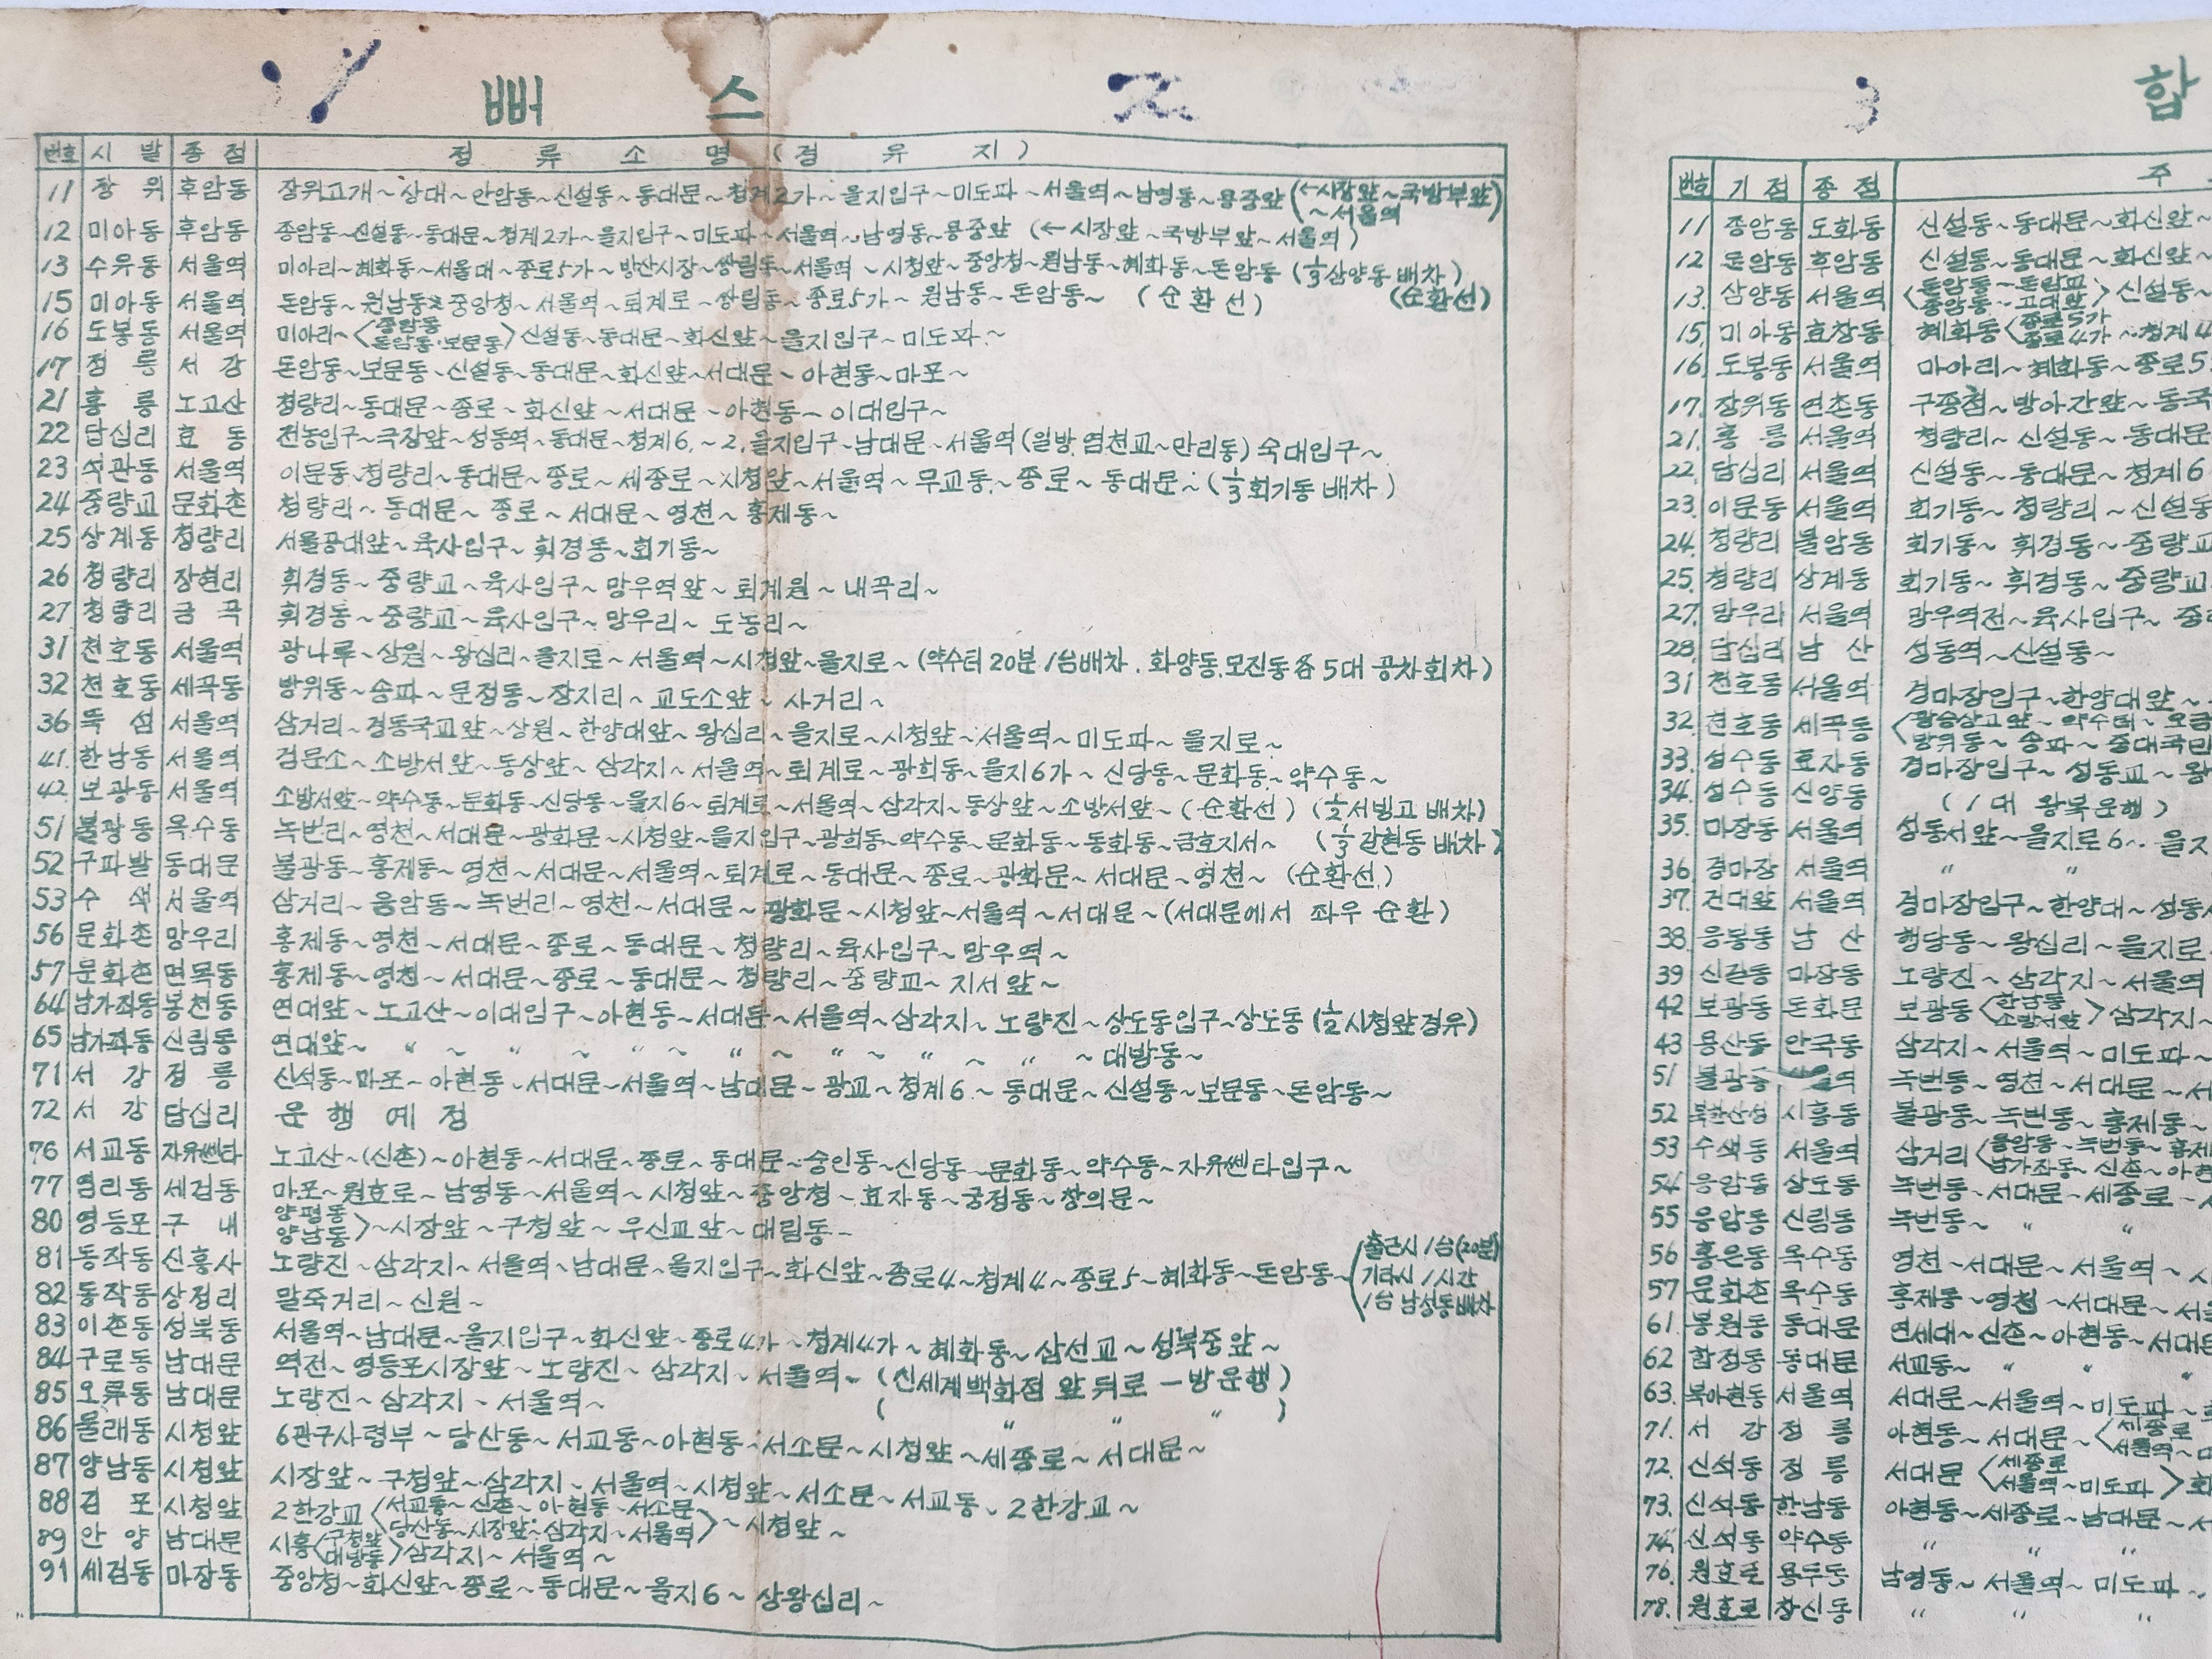 1 뻐스 2
번호 시발 종점 정류소명 (경유지)
11 장위 후암동 장위고개~상대~안암동~신설동~동대문~청계2가~을지입구~미도파~서울역~남영동~용중앞 (←시장앞~국방부앞~서울역)
12 미아동 후암동 종암동~신설동~동대문~청계2가~을지입구~미도파~서울역~남영동~용중앞 (←시장앞~국방부앞~서울역)
13 수유동 서울역 미아리~혜화동~서울대~종로5가~방산시장~쌍림동~서울역~시청앞~중앙청~원남동~혜화동~돈암동 (⅓삼양동 배차) (순환선)
15 미아동 서울역 돈암동~원남동~중앙청~서울역~퇴계로~쌍림동~종로5가~원남동~돈암동~ (순환선)
16 도봉동 서울역 미아리~<종암동 돈암동·보문동>신설동~동대문~화신앞~을지입구~미도파~
17 정릉 서강 돈암동~보문동~신설동~동대문~화신앞~서대문~아현동~마포~
21 홍릉 노고산 청량리~동대문~종로~화신앞~서대문~아현동~이대입구~
22 답십리 효동 전농입구~극장앞~성동역~동대문~청계6.~2.을지입구~남대문~서울역(일방.염천교~만리동) 숙대입구~
23 석관동 서울역 이문동~청량리~동대문~종로~세종로~시청앞~서울역~무교동~종로~동대문~(⅓회기동 배차)
24 중량교 문화촌 청량리~동대문~종로~서대문~영천~홍제동~
25 상계동 청량리 서울공대앞~육사입구~휘경동~회기동~
26 청량리 장현리 휘경동~중량교~육사입구~망우역앞~퇴계원~내곡리~
27 청량리 금곡 휘경동~중량교~육사입구~망우리~도농리~
31 천호동 서울역 광나루~상원~왕십리~을지로~서울역~시청앞~을지로~(약수터 20분 1台배차. 화양동.모진동各 5대 공차회차)
32 천호동 세곡동 방위동~송파~문정동~장지리~교도소앞~사거리~
36 뚝섬 서울역 삼거리~경동국교앞~상원~한양대앞~왕십리~을지로~시청앞~서울역~미도파~을지로~
41. 한남동 서울역 검문소~소방서앞~동상앞~삼각지~서울역~퇴계로~광희동~을지6가~신당동~문화동~약수동~
42. 보광동 서울역 소방서앞~약수동~문화동~신당동~을지6~퇴계로~서울역~삼각지~동상앞~소방서앞~(순환선) (½서빙고 배차)
51 불광동 옥수동 녹번리~영천~서대문~광화문~시청앞~을지입구~광희동~약수동~문화동~동화동~금호지서~ (⅓갈현동 배차)
52 구파발 동대문 불광동~홍제동~영천~서대문~서울역~퇴계로~동대문~종로~광화문~서대문~영천~ (순환선)
53 수색 서울역 삼거리~응암동~녹번리~영천~서대문~광화문~시청앞~서울역~서대문~(서대문에서 좌우 순환)
56 문화촌 망우리 홍제동~영천~서대문~종로~동대문~청량리~육사입구~망우역~
57 문화촌 면목동 홍제동~영천~서대문~종로~동대문~청량리~중량교~지서앞~
64 남가좌동 봉천동 연대앞~노고산~이대입구~아현동~서대문~서울역~삼각지~노량진~상도동입구~상도동 (½시청앞경유)
65 남가좌동 신림동 연대앞~ 〃 ~ 〃 ~ 〃 ~ 〃 ~ 〃 ~ 〃 ~ 〃 ~대방동~
71 서강 정릉 신석동~마포~아현동~서대문~서울역~남대문~광교~청계6~동대문~신설동~보문동~돈암동~
72 서강 답십리 운행예정
76 서교동 자유쎈타 노고산~(신촌)~아현동~서대문~종로~동대문~숭인동~신당동~문화동~약수동~자유쎈타입구~
77 염리동 세검동 마포~원효로~남영동~서울역~시청앞~중앙청~효자동~궁정동~창의문~
80 영등포 구내 양평동 양남동>~시장앞~구청앞~우신교앞~대림동~
81 동작동 신흥사 노량진~삼각지~서울역~남대문~을지입구~화신앞~종로4~청계4~종로5~혜화동~돈암동~(출근시 1台(20분) 기타시 1시간 1台 남성동배차
82 동작동 상정리 말죽거리~신원~
83 이촌동 성북동 서울역~남대문~을지입구~화신앞~종로4가~청계4가~혜화동~삼선교~성북중앞~
84 구로동 남대문 역전~영등포시장앞~노량진~삼각지~서울역~ (신세계백화점 앞 뒤로 一방운행)
85 오류동 남대문 노량진~삼각지~서울역~ ( 〃 〃 〃 )
86 문래동 시청앞 6관구사령부~당산동~서교동~아현동~서소문~시청앞~세종로~서대문~
87 양남동 시청앞 시장앞~구청앞~삼각지~서울역~시청앞~서소문~서교동~2한강교~
88 김포 시청앞 2한강교<서교동~신촌~아현동~서소문 당산동~시장앞~삼각지~서울역>~시청앞~
89 안양 남대문 시흥<구청앞 대방동>삼각지~서울역~
91 세검동 마장동 중앙청~화신앞~종로~동대문~을지6~상왕십리~
3 합
번호 기점 종점 주
11 종암동 도화동 신설동~동대문~화신앞~
12 돈암동 후암동 신설동~동대문~화신앞~
13. 삼양동 서울역 <돈암동~돈암교 종암동~고대앞>신설동~
15. 미아동 효창동 혜화동<종로5가 종로4가~청계4
16. 도봉동 서울역 미아리~혜화동~종로5
17. 장위동 연촌동 구종점~방아간앞~동국
21. 홍릉 서울역 청량리~신설동~동대문
22. 답십리 서울역 신설동~동대문~청계6
23. 이문동 서울역 회기동~청량리~신설동
24. 청량리 불암동 회기동~휘경동~중량교
25. 청량리 상계동 회기동~휘경동~중량교
27. 망우리 서울역 망우역전~육사입구~중
28. 답십리 남산 성동역~신설동~
31 천호동 서울역 경마장입구~한양대앞~
32. 천호동 세곡동 방위동~송파~중대국민
33. 성수동 효자동 경마장입구~성동교~왕
34. 성수동 신양동 (1대 왕복운행)
35. 마장동 서울역 성동서앞~을지로6~.을지
36 경마장 서울역 〃 〃
37. 건대앞 서울역 경마장입구~한양대~성동
38. 응봉동 남산 행당동~왕십리~을지로
39 신길동 마장동 노량진~삼각지~서울역
42 보광동 돈화문 보광동<한남동 소방서앞>삼각지~
43 용산동 안국동 삼각지~서울역~미도파~
51 불광동 서울역 녹번동~영천~서대문~서
52 북한산성 시흥동 불광동~녹번동~홍제동~
53 수색동 서울역 삼거리<응암동~녹번동~홍제 남가좌동~신촌~아현
54 응암동 상도동 녹번동~서대문~세종로~
55 응암동 신림동 녹번동~ 〃 〃
56 홍은동 옥수동 영천~서대문~서울역~
57 문화촌 옥수동 홍제동~영천~서대문~서울
61. 봉원동 동대문 연세대~신촌~아현동~서대문
62 합정동 동대문 서교동~ 〃 〃 〃
63. 북아현동 서울역 서대문~서울역~미도파~
71. 서강 정릉 아현동~서대문~<세종로 서울역~미
72. 신석동 정릉 서대문<세종로 서울역~미도파>화
73. 신석동 한남동 아현동~세종로~남대문~서
74. 신석동 약수동 〃 〃 〃
76. 원효로 용두동 남영동~서울역~미도파~
78. 원효로 창신동 〃 〃 〃